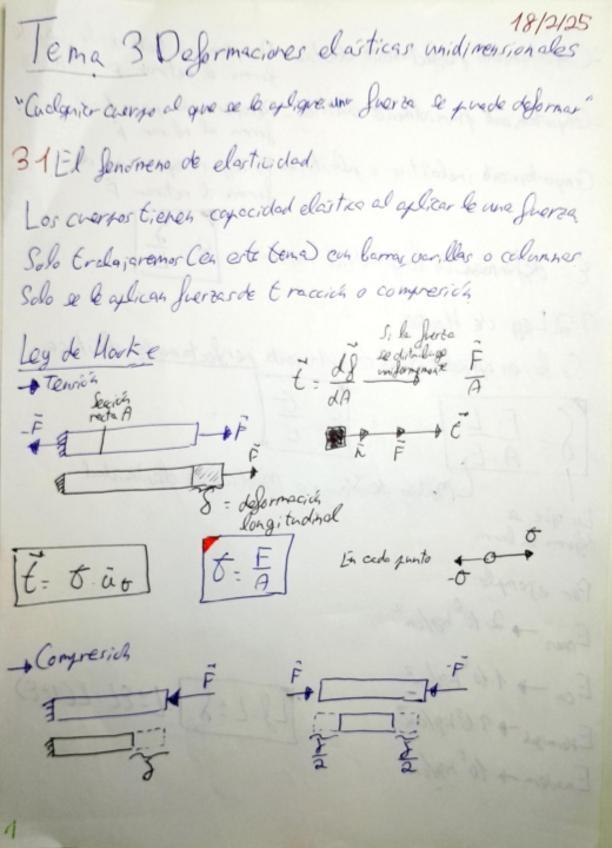 18/2/25
Tema 3 Deformaciones elásticas unidimensionales
"Cualquier cuerpo al que se le aplique una fuerza se puede deformar"
3.1 El fenómeno de elasticidad
Los cuerpos tienen capacidad elástica al aplicarle una fuerza
Solo trabajaremos (en este tema) con barras varillas o columnas
Solo se le aplican fuerzas de tracción o compresión
Ley de Hooke
→ Tensión
Sección
recta A
-F⃗
F⃗
F⃗
δ = deformación
longitudinal
Si la fuerza
se distribuye
uniformemente
t⃗ = df⃗/dA → F⃗/A
n⃗ F⃗ t⃗
t⃗ = σ · u⃗σ
σ = F/A
En cada punto
-σ σ
→ Compresión
F⃗
δ
F⃗ -F⃗
δ/2 δ/2
1